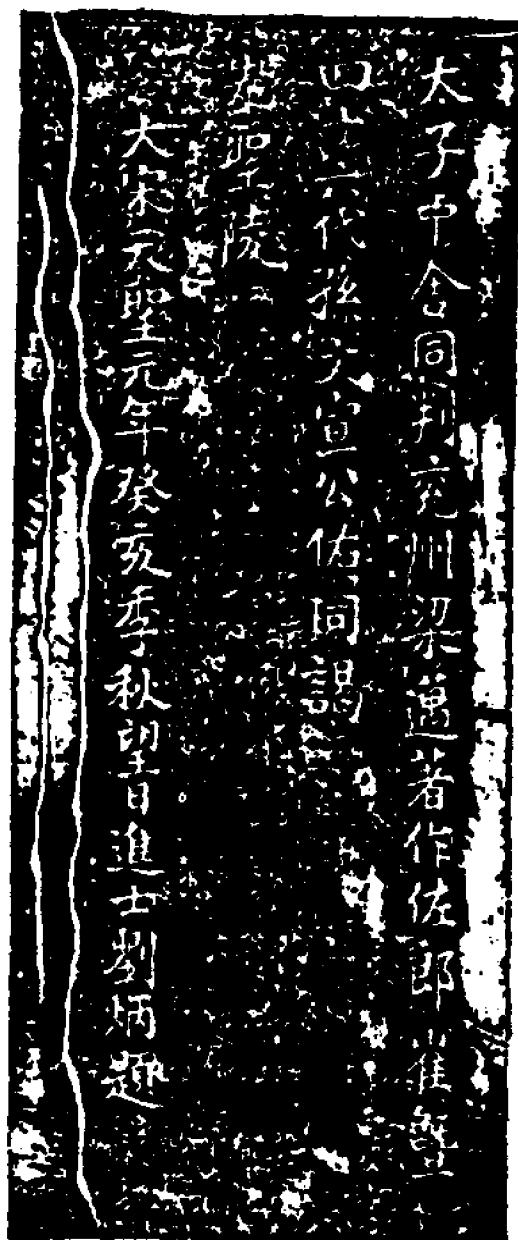 太子中舍同判兖州梁邁著作佐郎崔
代孫文宣公佑同謁
聖陵
大宋天聖元年癸亥季秋望日進士劉炳題